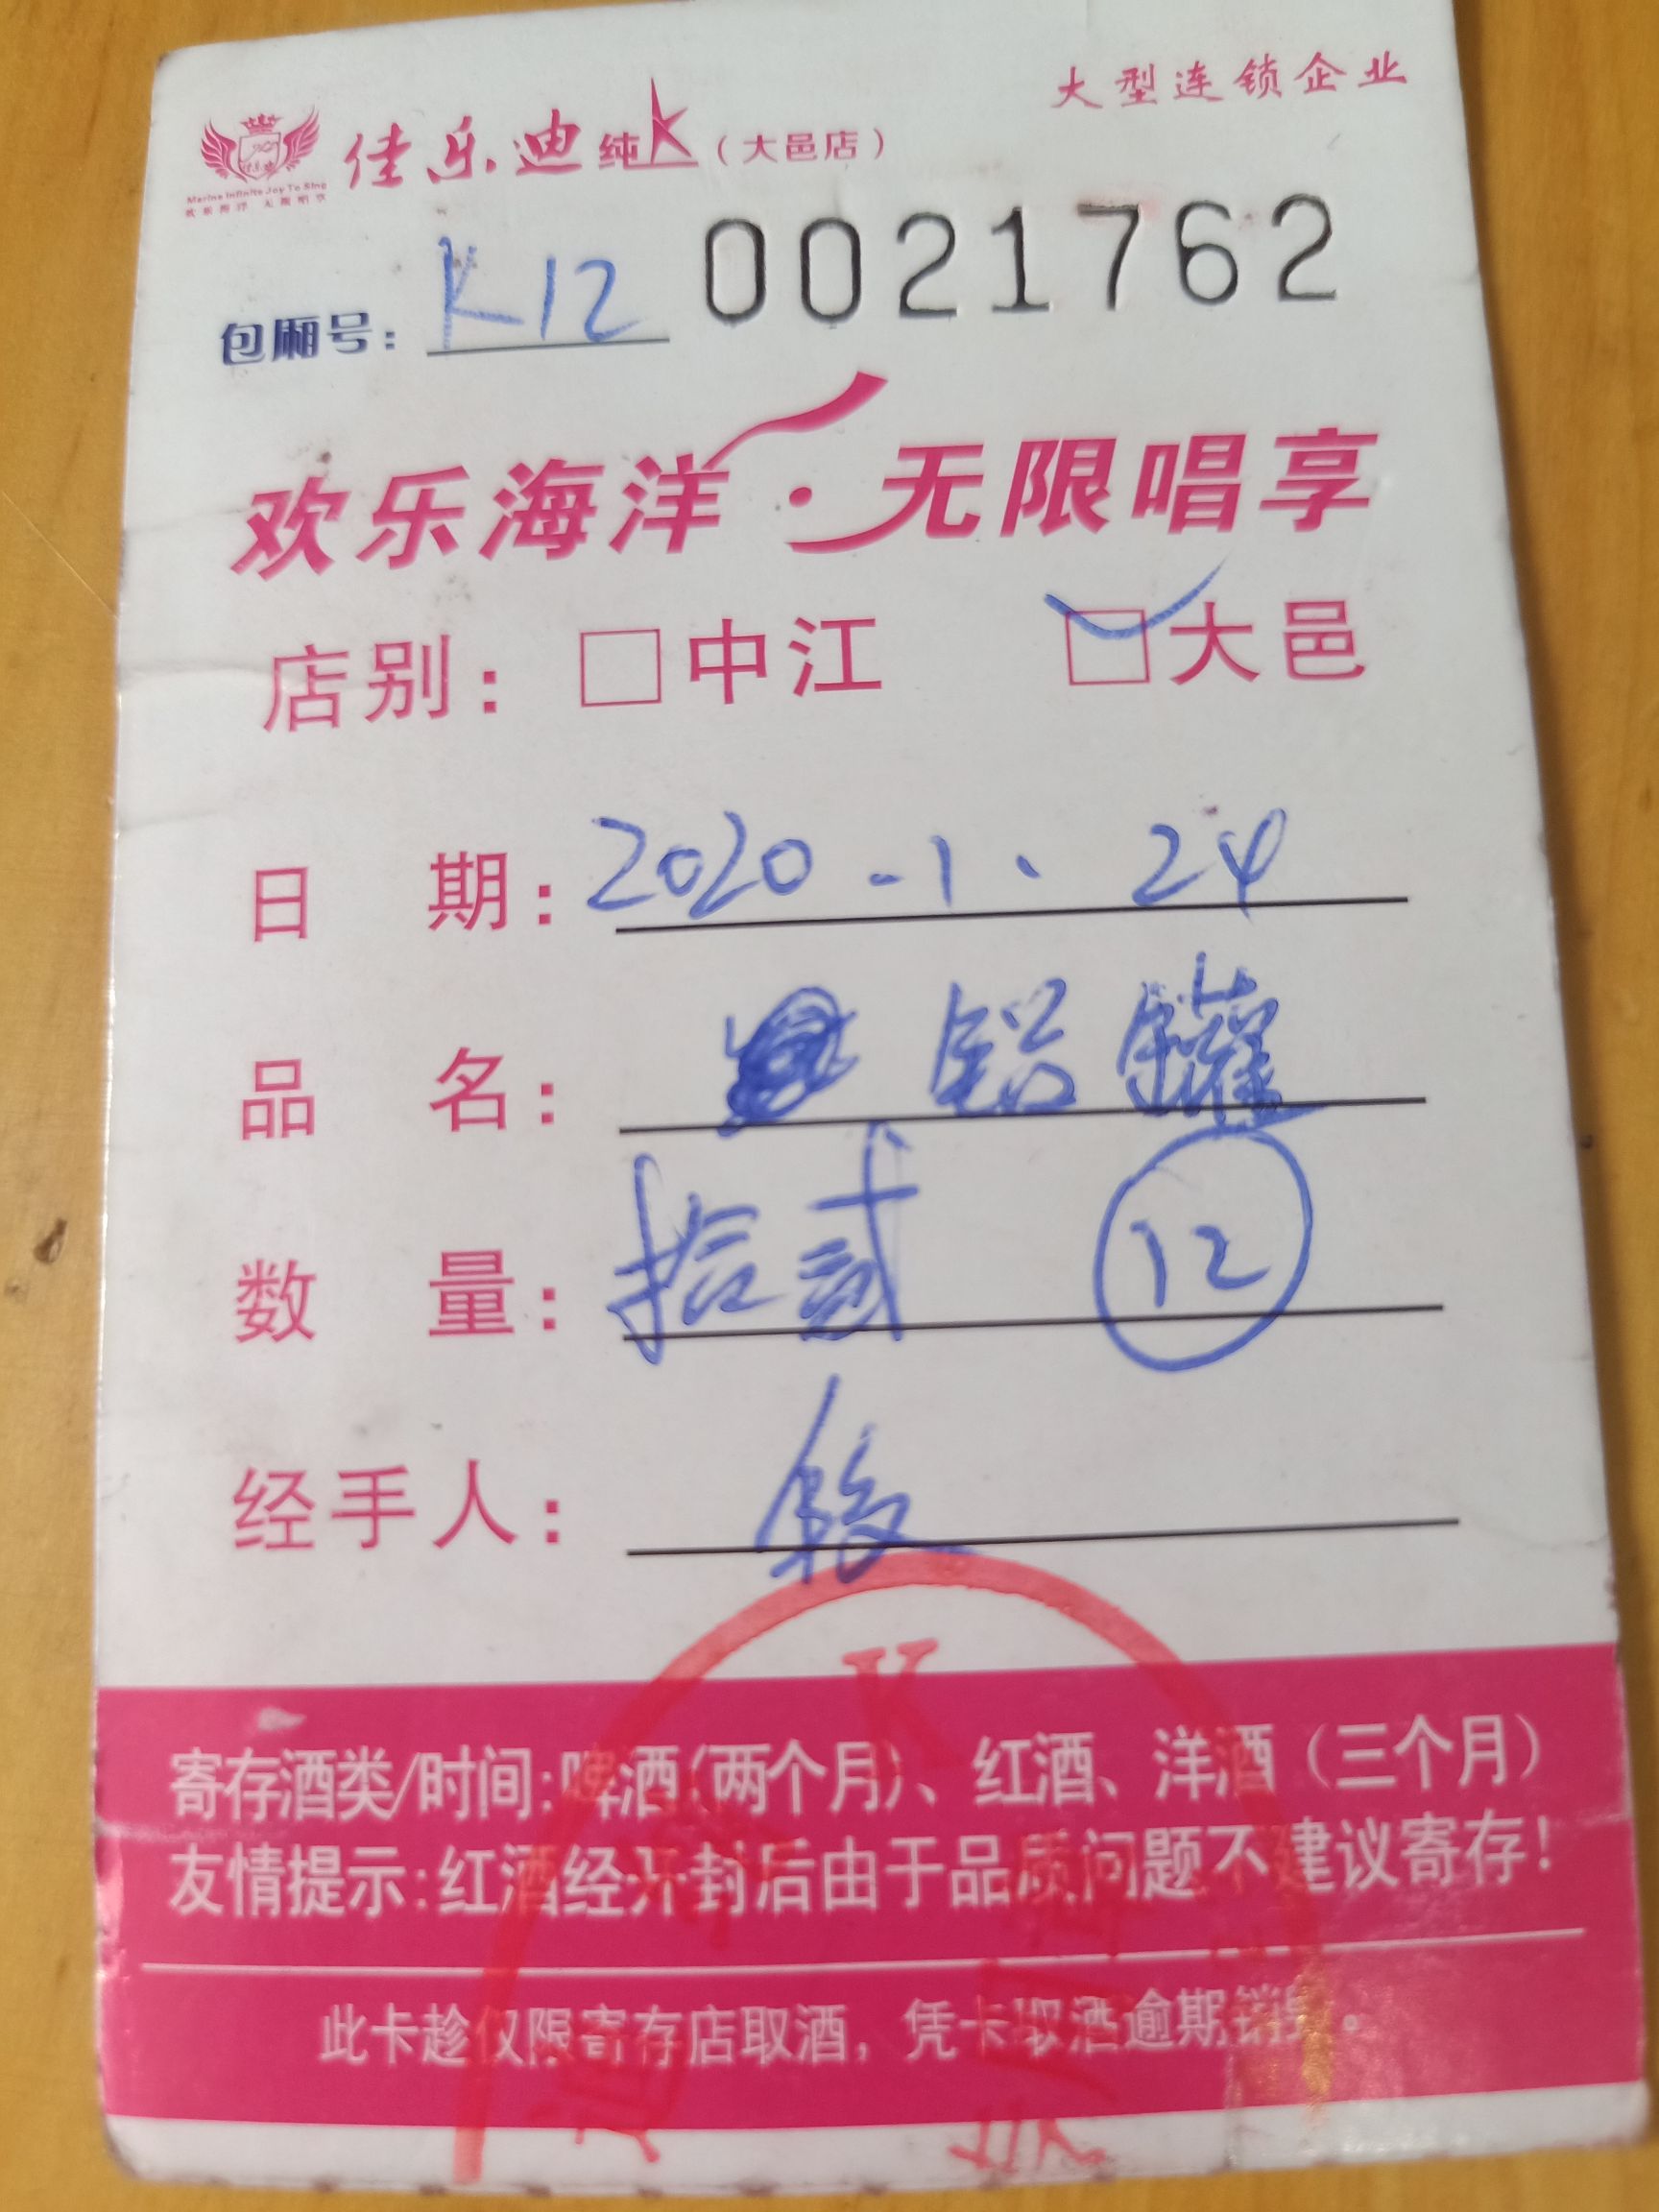 大型连锁企业
佳乐迪纯K（大邑店）
Marine Infinite Joy To Sing
欢乐海洋 无限唱享
包厢号：K12 0021762
欢乐海洋·无限唱享
店别：□中江 □大邑
日 期：2020.1.24
品 名：铝罐
数 量：拾贰 12
经手人：
寄存酒类/时间：啤酒（两个月）、红酒、洋酒（三个月）
友情提示：红酒经开封后由于品质问题不建议寄存！
此卡趁仅限寄存店取酒，凭卡取酒逾期销毁。
K